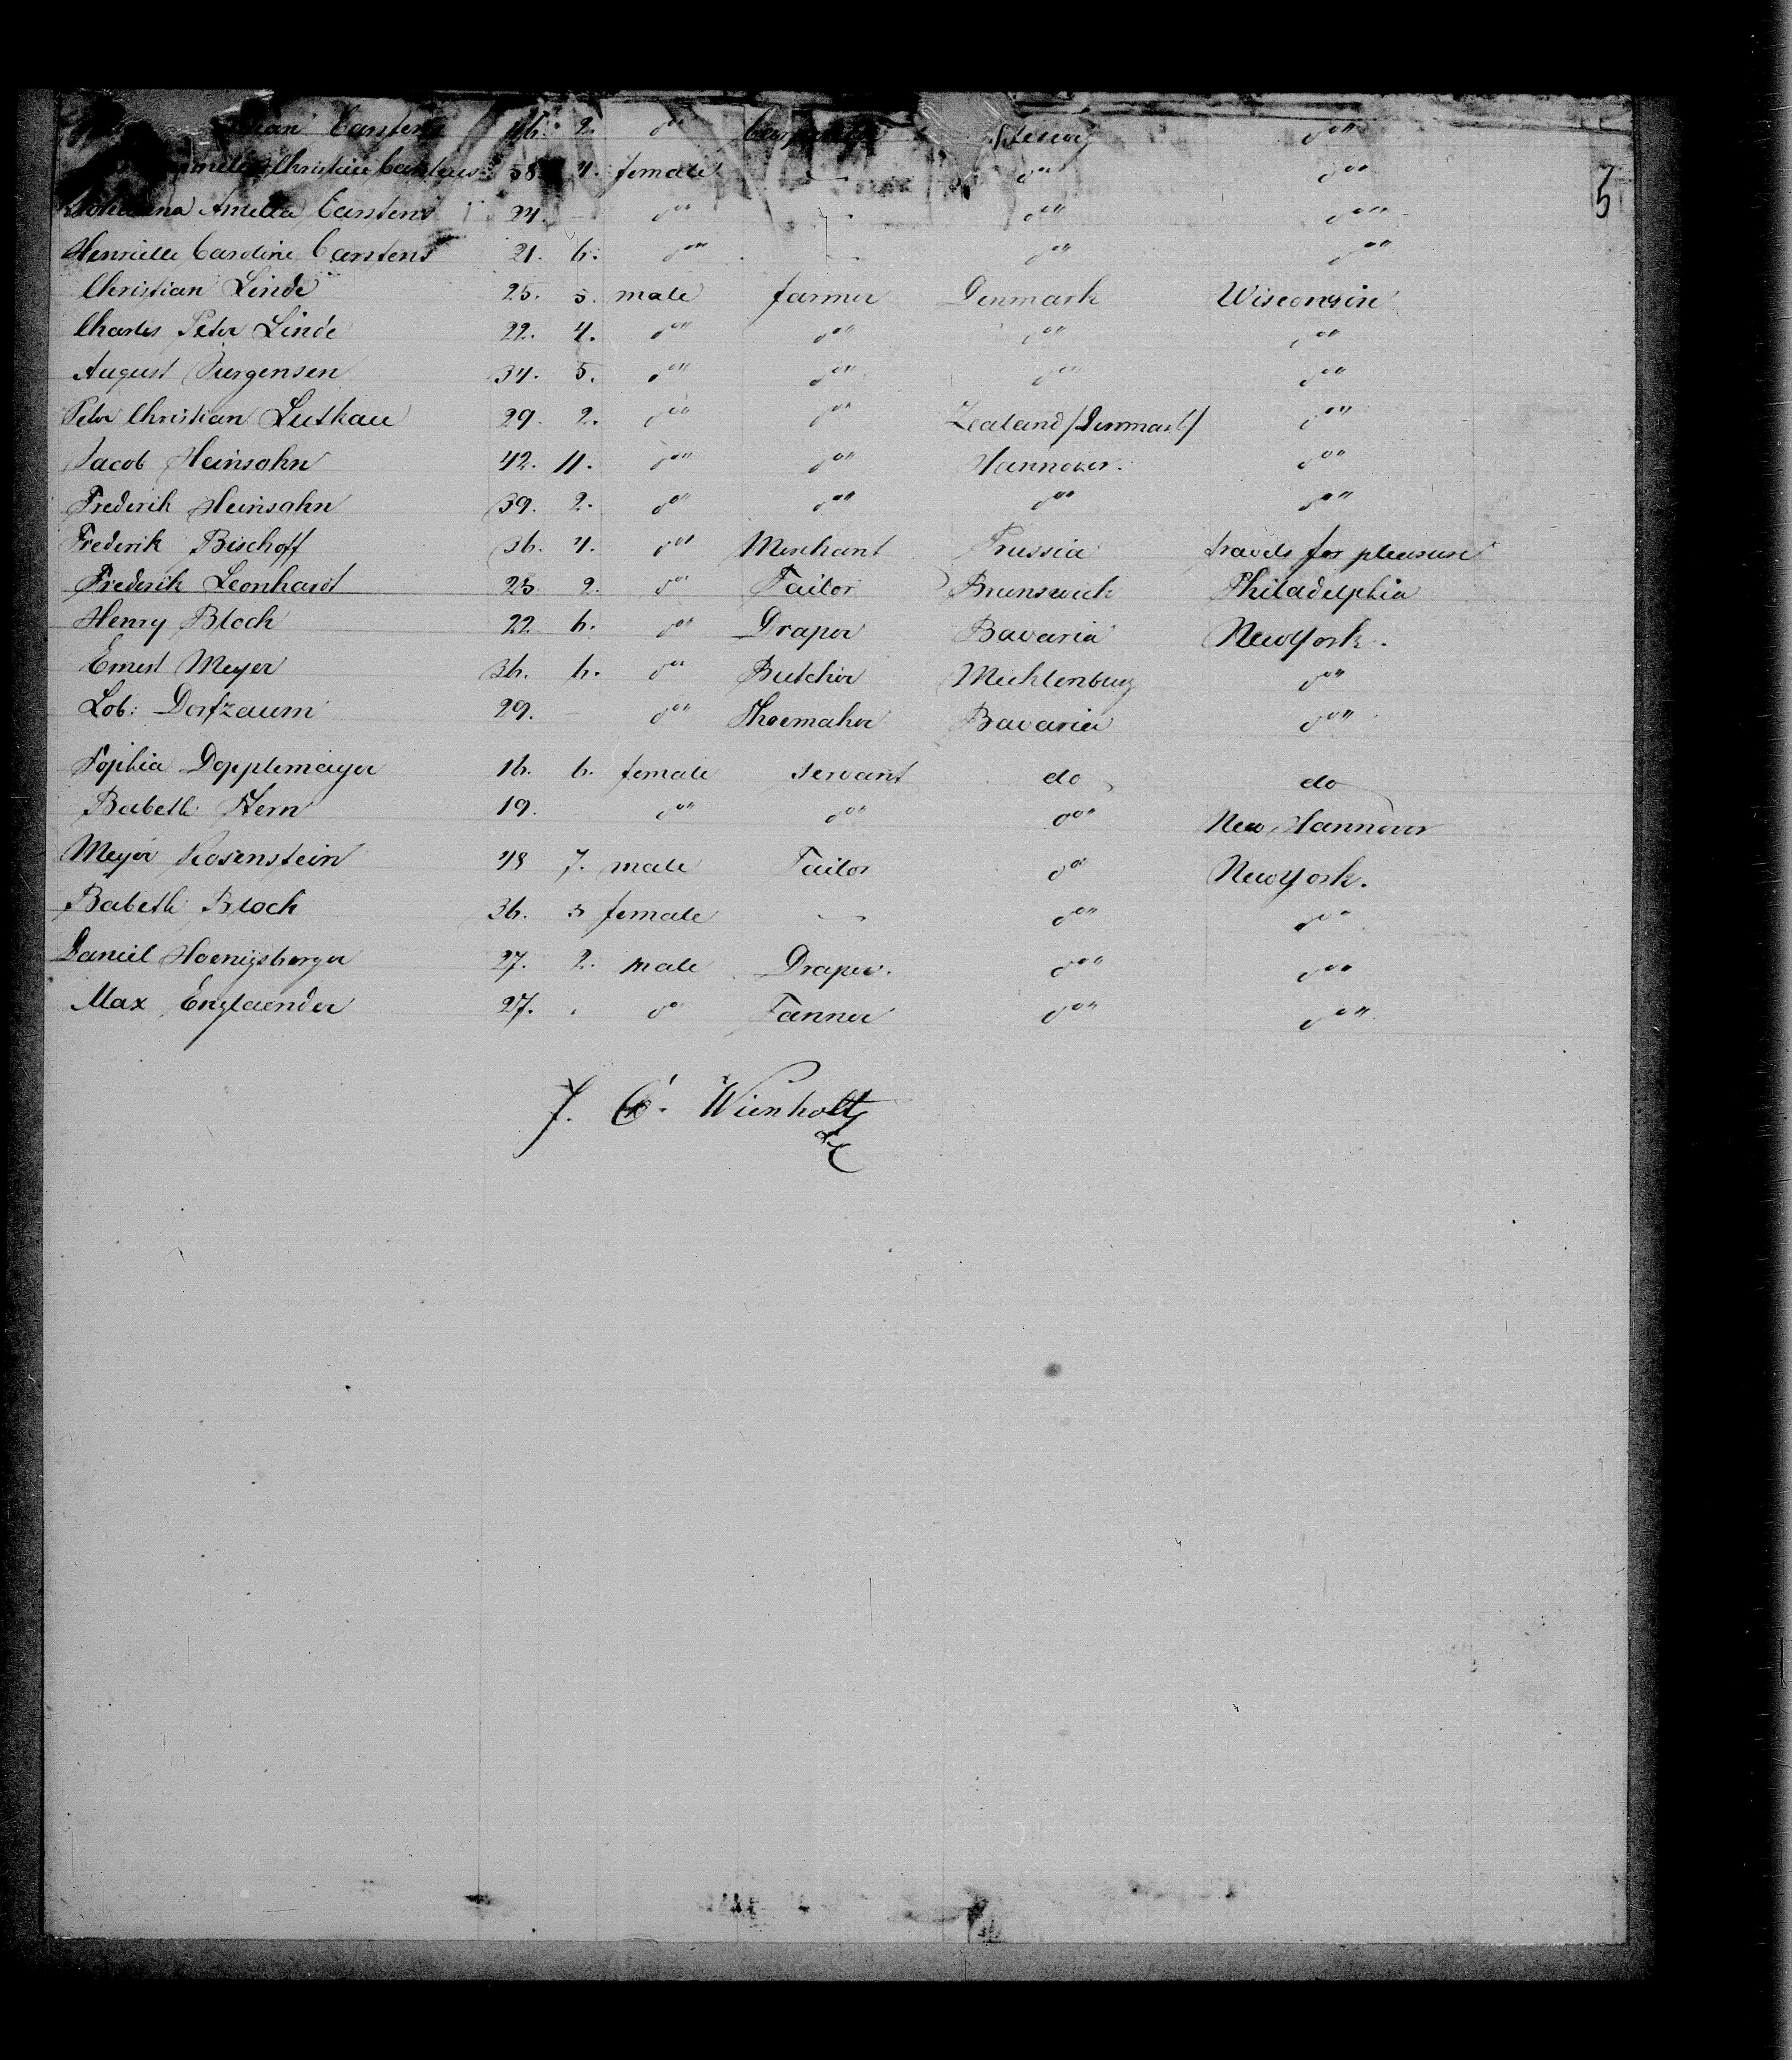 Carstens 46. 2. do"
Christine Carstens 58. 4. female — do" do"
Amelia Carstens 24. — do" — do" do"
Henriette Caroline Carstens 21. 6. do" — do" do"
Christian Linde 25. 5. male farmer Denmark Wisconsin
Charles Peter Linde 22. 4. do" do" do" do"
August Jurgensen 34. 5. do" do" do" do"
Peter Christian Lutkau 29. 2. do" do" Zealand /Denmark/ do"
Jacob Heinsohn 42. 11. do" do" Hannover. do"
Frederik Heinsohn 39. 2. do" do" do" do"
Frederik Bischoff 36. 4. do" Merchant Prussia travels for pleasure
Frederik Leonhardt 25 2. do Tailor Brunswick Philadelphia
Henry Bloch 22 6. do" Draper Bavaria New York.
Ernest Meyer 36. 6. do" Butcher Mecklenburg do"
Lob: Dorfzaum 29. — do" Shoemaker Bavaria do"
Sophia Dopplemayer 16. 6. female servant do do
Babeth 19. do" do" do" New Hannover
Meyer Rosenstein 48 7. male Tailor do" New York.
Babeth Bloch 36. 5 female — do" do"
Daniel Hoenigsberger 27. 2. male Draper. do" do"
Max Englaender 27. do Tanner do" do"
J. C. Wienholtz
5